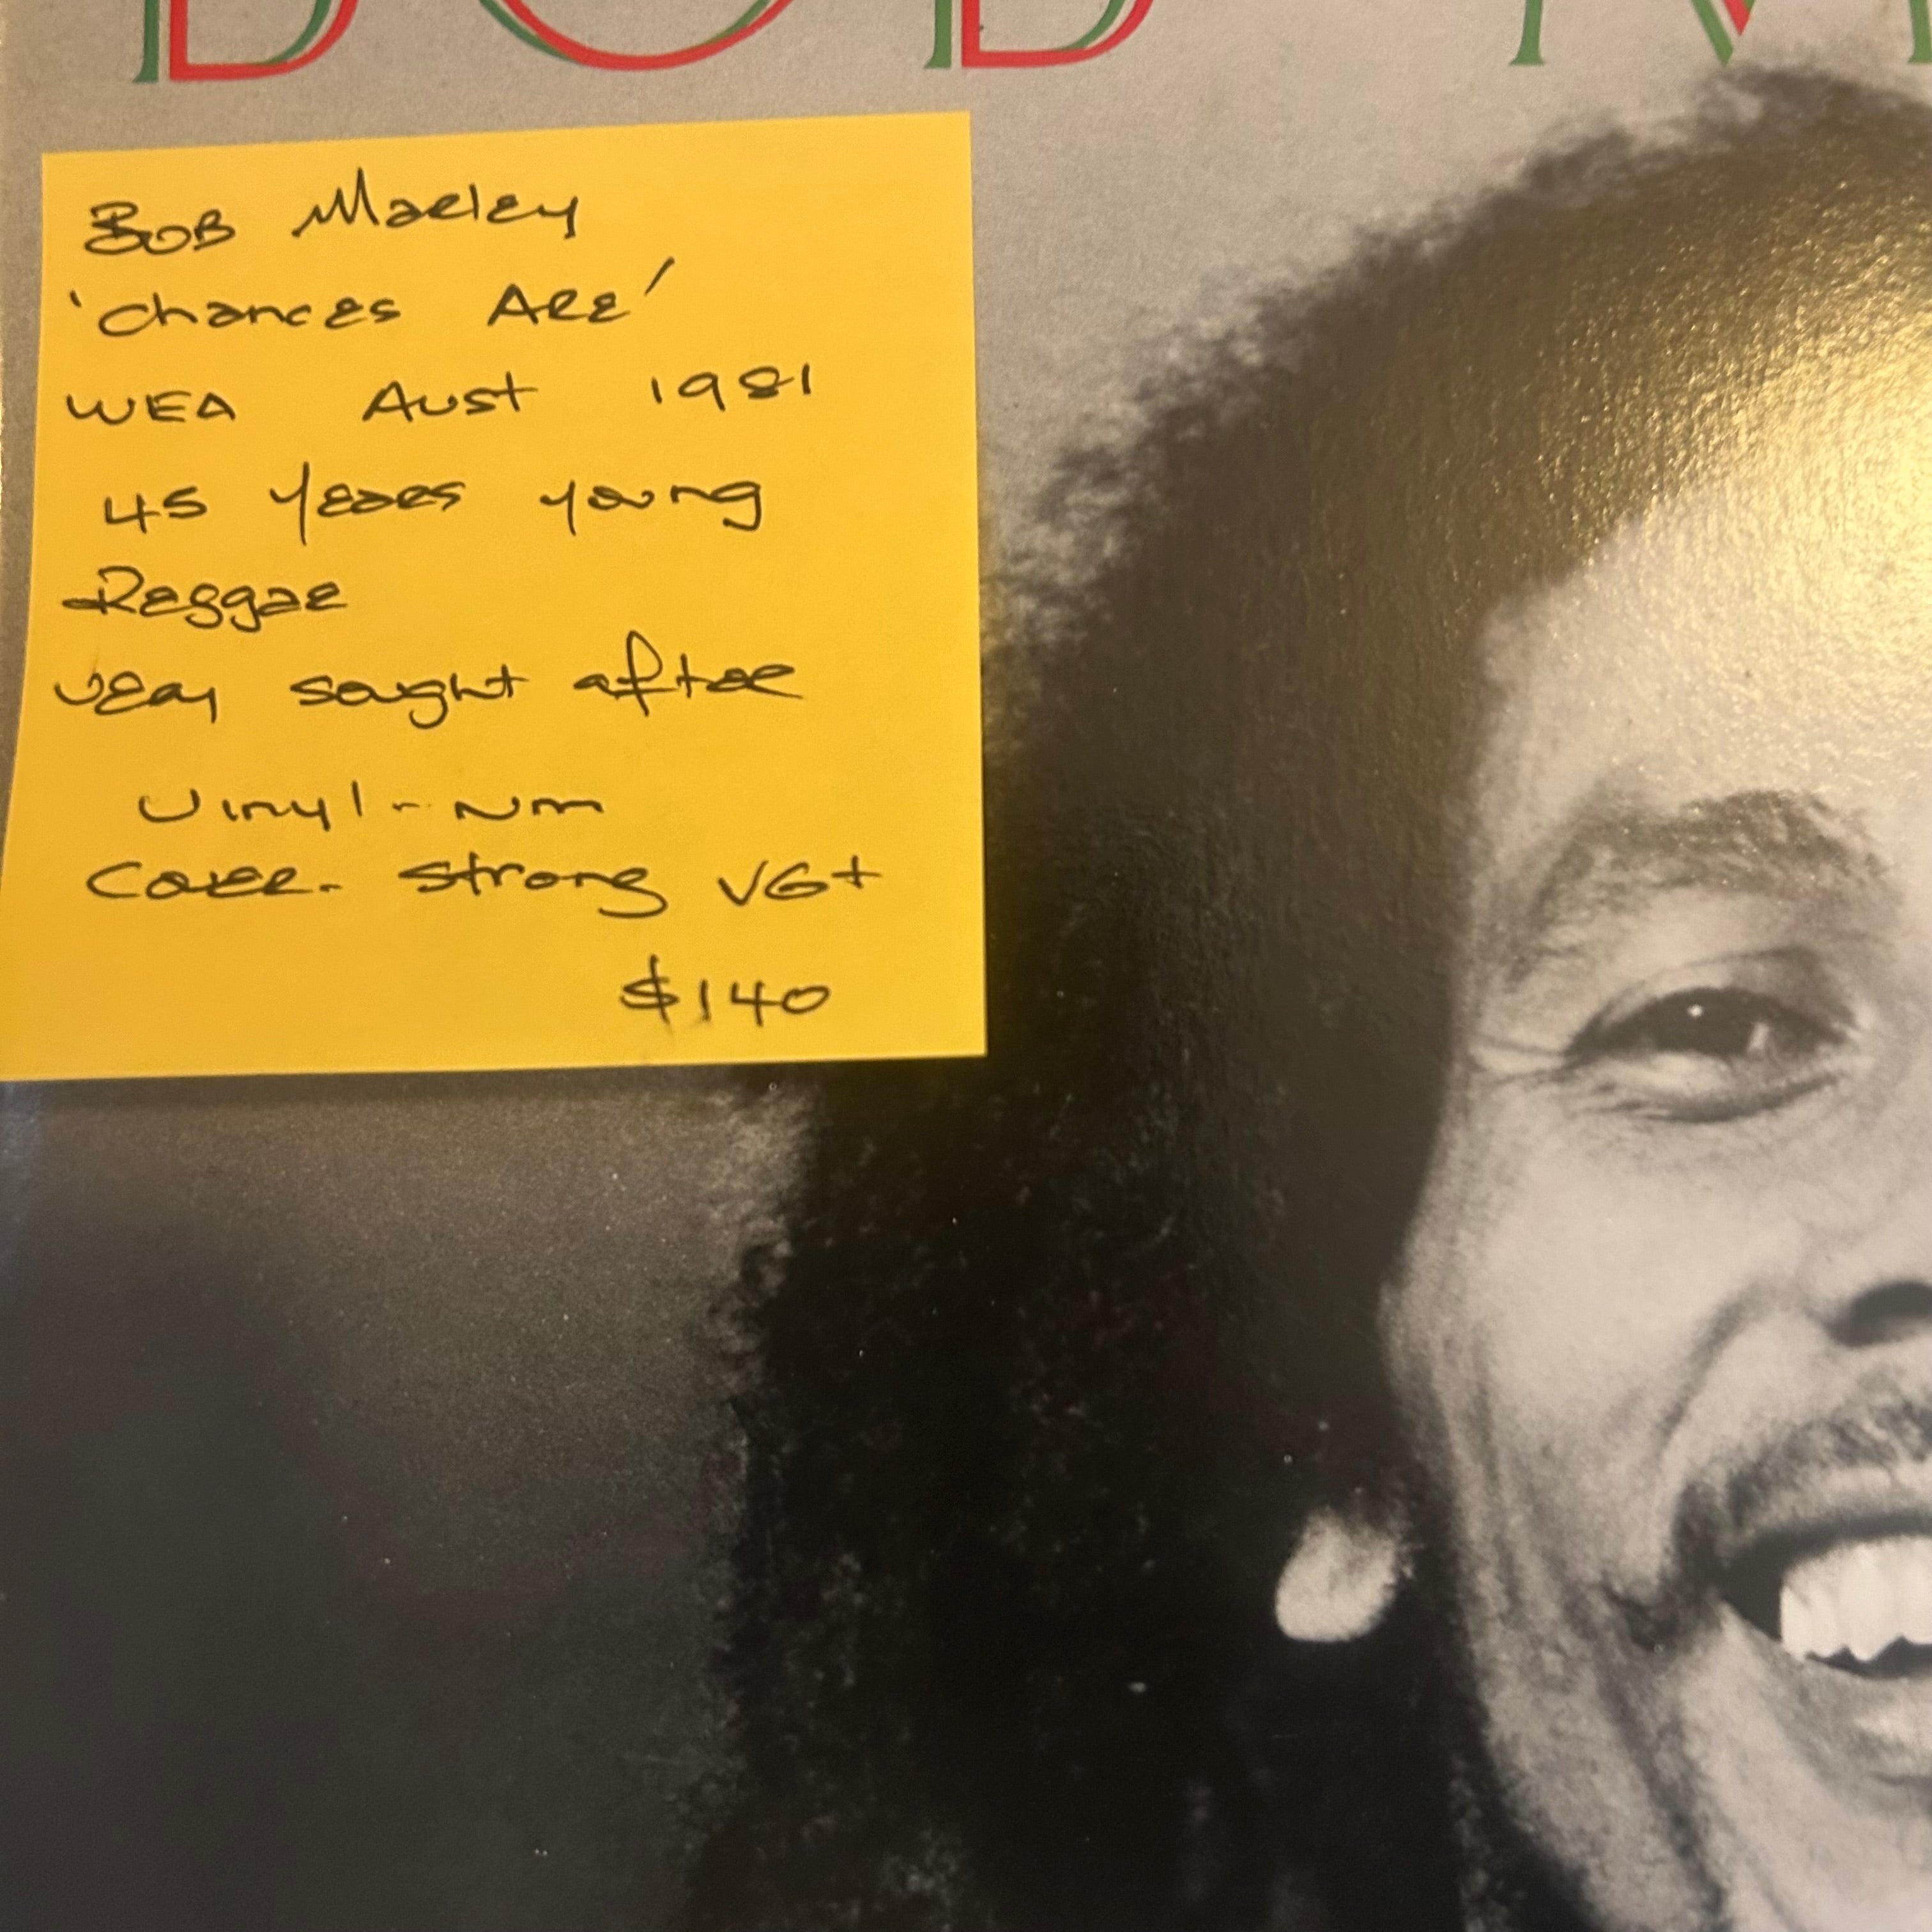 BOB M
Bob Marley
'Chances Are'
WEA Aust 1981
45 years young
Reggae
very sought after
Vinyl - NM
Cover - strong VG+
$140